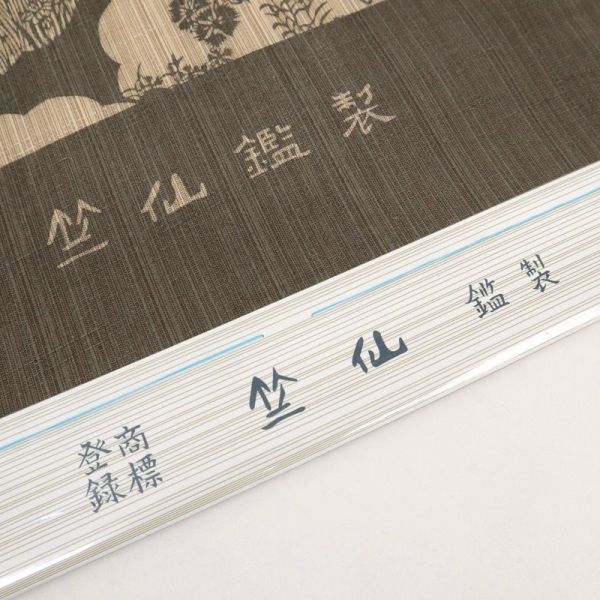 竺仙鑑製
竺仙鑑製
登録商標